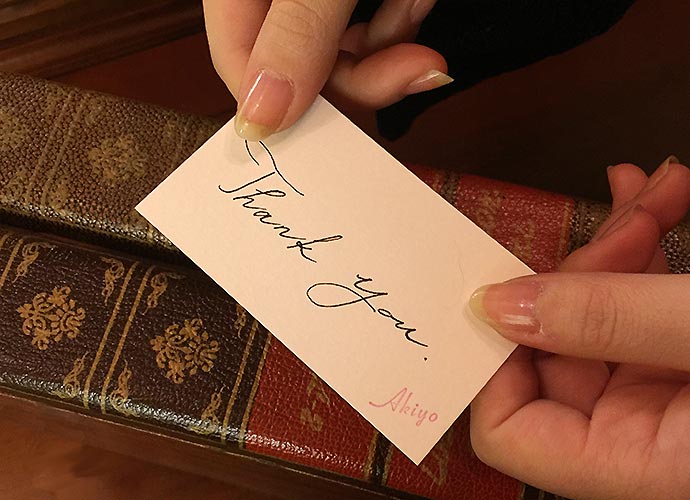 Thank you.
Akiyo